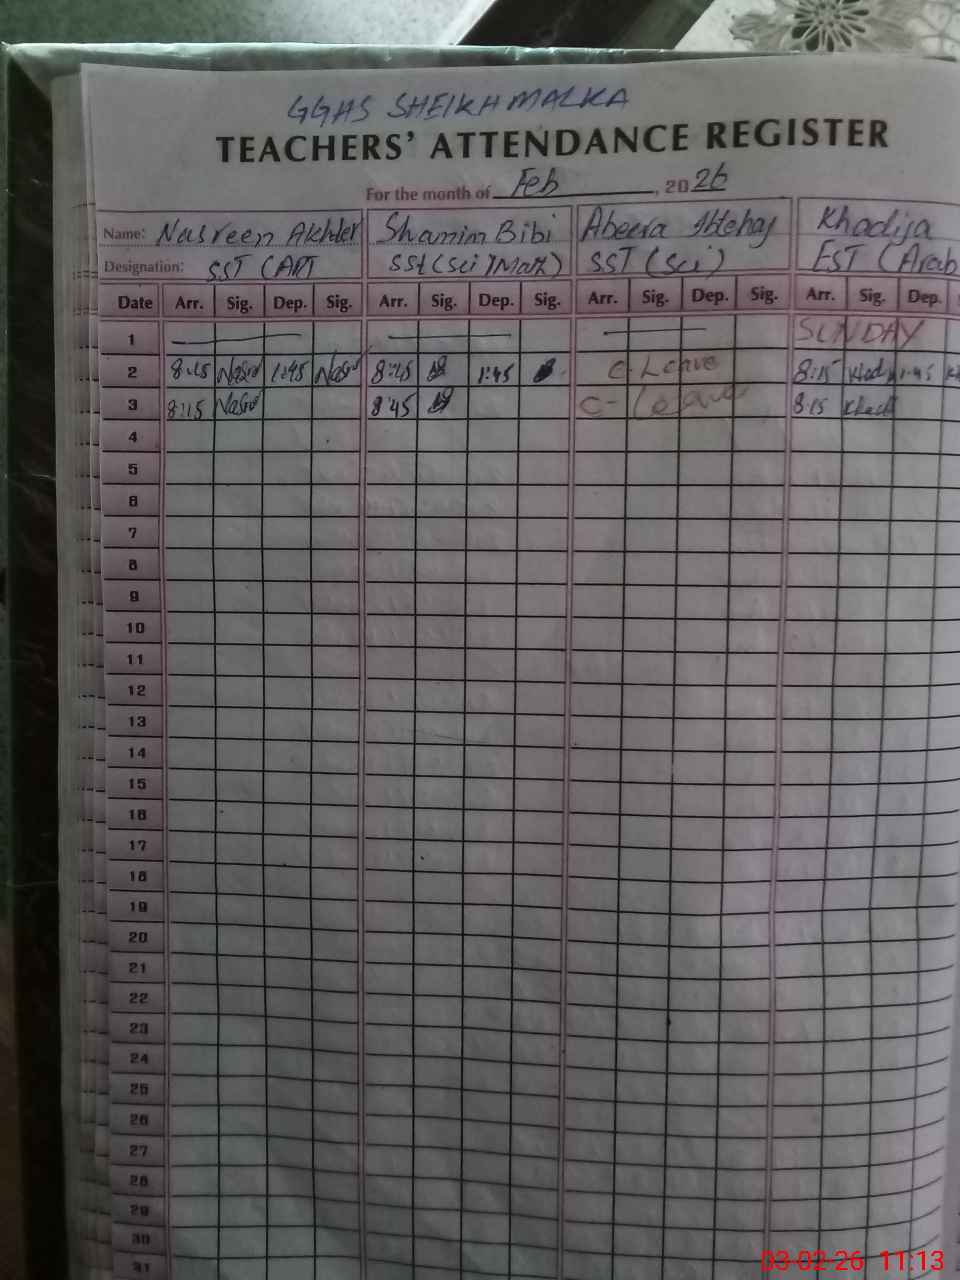 GGHS SHEIKH MALKA
TEACHERS' ATTENDANCE REGISTER
For the month of Feb, 2026
Name: Nasreen Akhter Shamim Bibi Abeera Khadija
Designation: SST (ART SSt (Sci)(Math) SST (Sci) EST (Arab
Date Arr. Sig. Dep. Sig. Arr. Sig. Dep. Sig. Arr. Sig. Dep. Sig. Arr. Sig. Dep.
1 SUNDAY
2 8:15 1:45 8:15 1:45 C-Leave 8:15 1:45
3 8:15 8:45 C-Leave 8:15
4
5
6
7
8
9
10
11
12
13
14
15
16
17
18
19
20
21
22
23
24
25
26
27
28
29
30
31
03-02-26 11:13